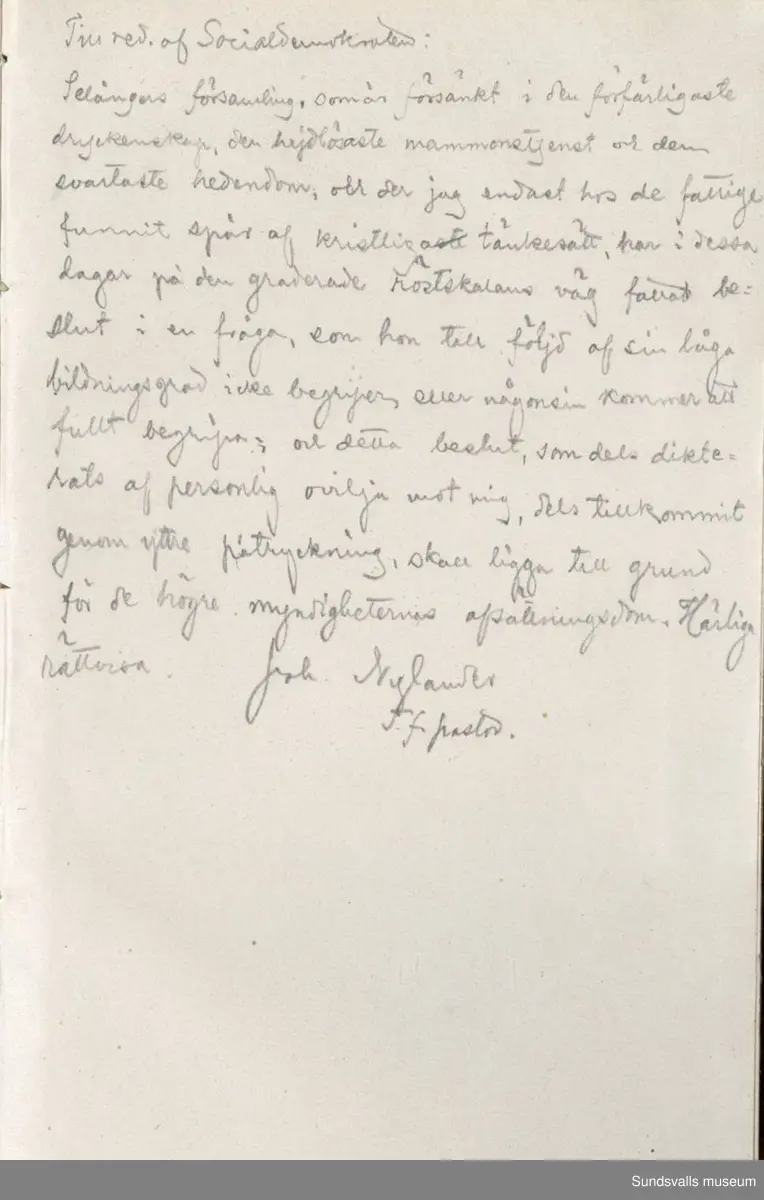 Till red. af Socialdemokraten:
Selångers församling, som är försänkt i den förfärligaste
dryckenskap, den hejdlösaste mammonstjenst och den
svartaste hedendom, och der jag endast hos de fattige
funnit spår af kristligaste tänkesätt, har i dessa
dagar på den graderade röstskalans väg fattat be=
slut i en fråga, som hon till följd af sin låga
bildningsgrad icke begriper, eller någonsin kommer att
fullt begripa; och detta beslut, som dels dikte=
rats af personlig ovilja mot mig, dels tillkommit
genom yttre påtryckning, skall ligga till grund
för de högre myndigheternas afsättningsdom. Härliga
rättvisa. Joh. Nylander
T. f. pastor.
Sundsvalls museum